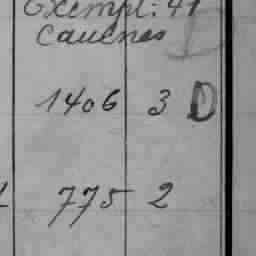 Exempl: 41
Cauenas
1406 3 D
775 2